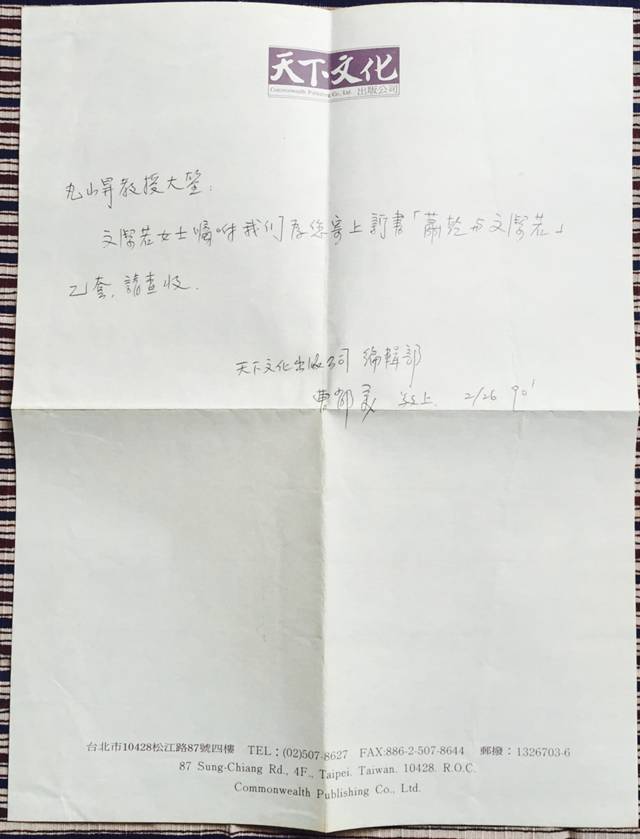 天下文化
Commonwealth Publishing Co., Ltd. 出版公司
丸山昇教授大鑒：
文潔若女士囑咐我们為您寄上新書「蕭乾与文潔若」
乙套，請查收．
天下文化出版公司 編輯部
曹郁美 敬上． 2/26 90'
台北市10428松江路87號四樓 TEL：(02)507-8627 FAX:886-2-507-8644 郵撥：1326703-6
87 Sung-Chiang Rd., 4F., Taipei. Taiwan. 10428. R.O.C.
Commonwealth Publishing Co., Ltd.